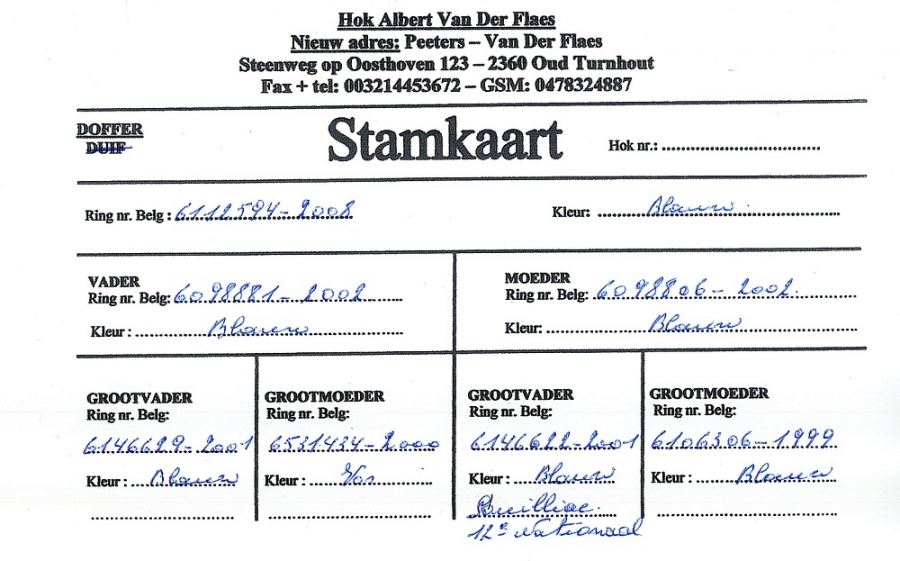 Hok Albert Van Der Flaes
Nieuw adres: Peeters – Van Der Flaes
Steenweg op Oosthoven 123 – 2360 Oud Turnhout
Fax + tel: 003214453672 – GSM: 0478324887
DOFFER
DUIF
Stamkaart
Hok nr.:
Ring nr. Belg : 6112594-2008
Kleur: Blauw
VADER
Ring nr. Belg: 6098881-2002
Kleur : Blauw
MOEDER
Ring nr. Belg: 6098806-2002
Kleur: Blauw
GROOTVADER
Ring nr. Belg:
6146629-2001
Kleur : Blauw
GROOTMOEDER
Ring nr. Belg:
6531434-2000
Kleur : Vos
GROOTVADER
Ring nr. Belg:
6146622-2001
Kleur : Blauw
12e Nationaal
GROOTMOEDER
Ring nr. Belg:
6106306-1999
Kleur : Blauw